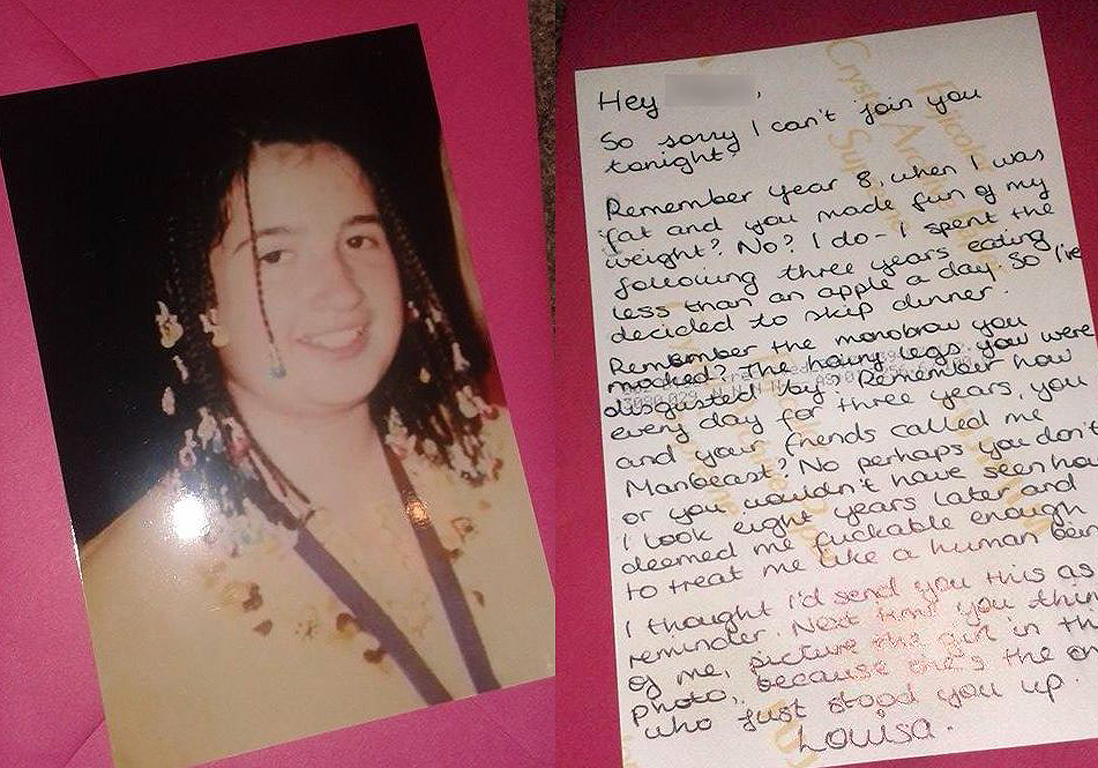 Hey ,
So sorry I can't join you
tonight.
Remember year 8, when I was
fat and you made fun of my
weight? No? I do - I spent the
following three years eating
less than an apple a day. So I've
decided to skip dinner.
Remember the monobrow you
mocked? The hairy legs you were
disgusted by? Remember how
every day for three years, you
and your friends called me
Manbeast? No perhaps you don't
or you wouldn't have seen how
I look eight years later and
deemed me fuckable enough
to treat me like a human bein
I thought I'd send you this as
reminder. Next time you thin
of me, picture the girl in th
photo, because she's the on
who just stood you up.
Louisa.